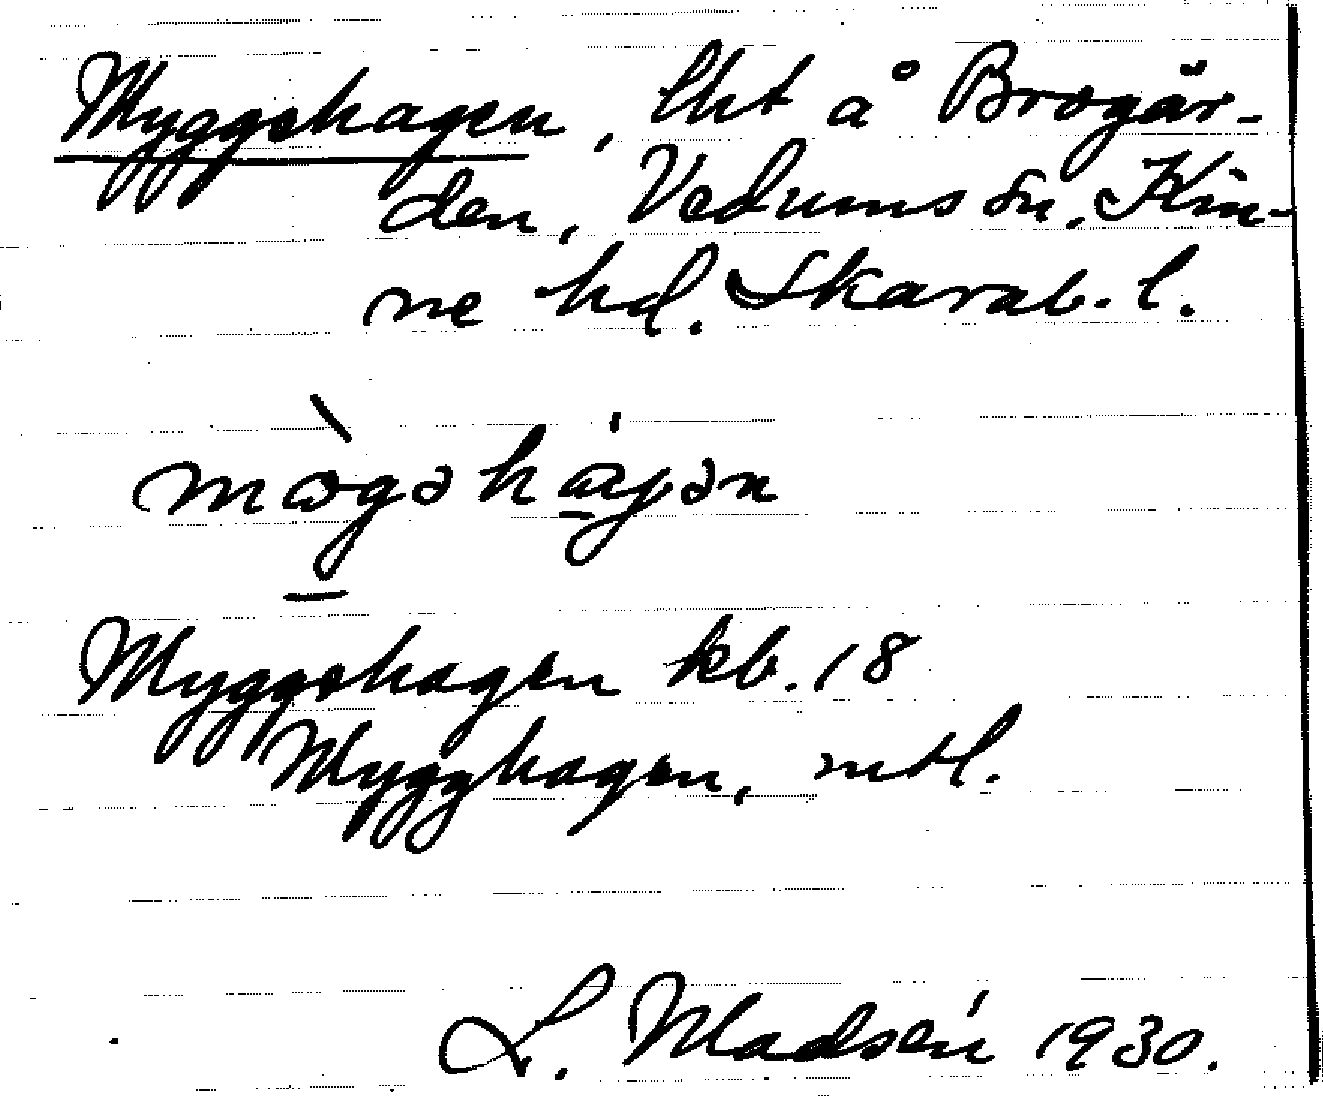 Myggshagen, lht å Brogår-
den, Vedums sn. Kin-
ne hd. Skarab. l.
Myggshagen kb. 18
Mygghagen, mtl.
L. Madsén 1930.